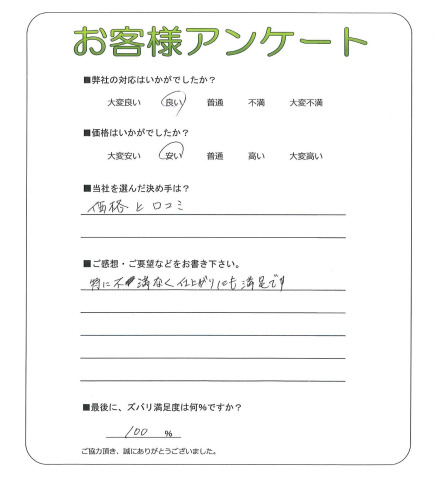 お客様アンケート
■弊社の対応はいかがでしたか？
大変良い 良い 普通 不満 大変不満
■価格はいかがでしたか？
大変安い 安い 普通 高い 大変高い
■当社を選んだ決め手は？
価格と口コミ
■ご感想・ご要望などをお書き下さい。
特に不満なく仕上がりにも満足です
■最後に、ズバリ満足度は何％ですか？
100 ％
ご協力頂き、誠にありがとうございました。